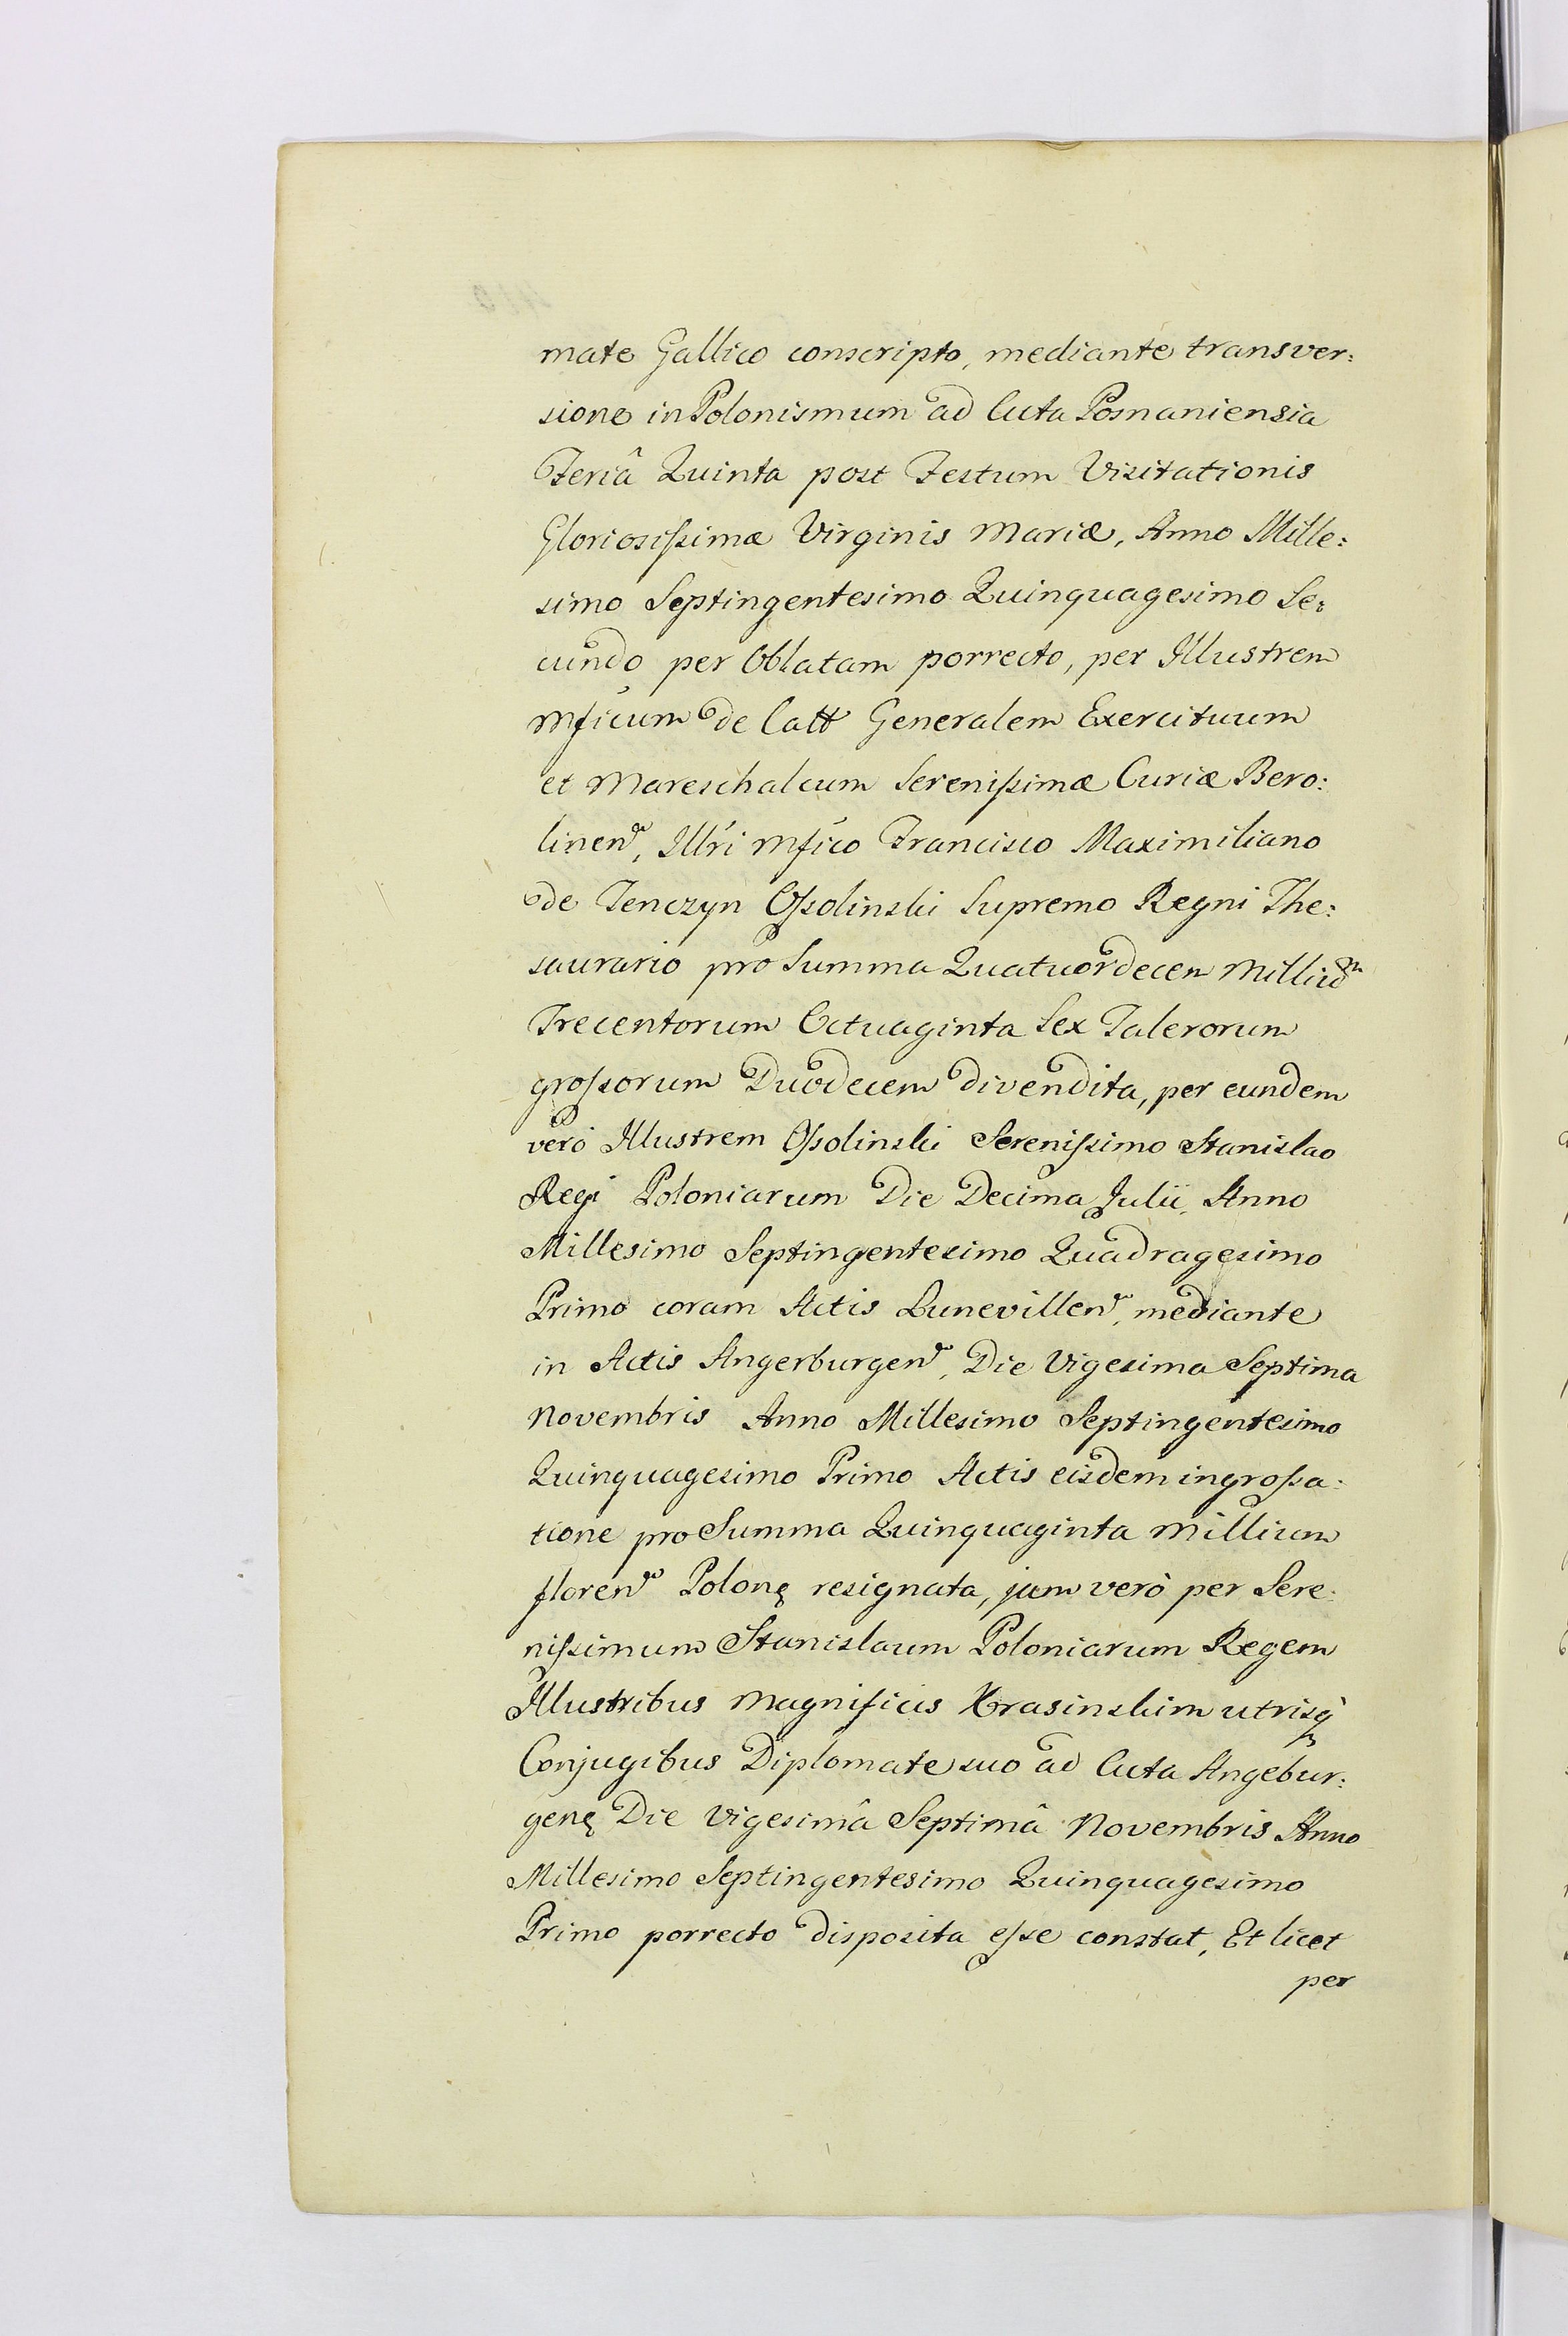 mate Gallico conscripto, mediante transver:
sione in Polonismum ad Acta Posnaniensia
Feriâ Quinta post Festum Visitationis
Gloriosißimæ Virginis Mariæ, Anno Mille:
simo Septingentesimo Quinquagesimo Se:
cundo per Oblatam porrecto, per Illustrem
Mficum de Catt Generalem Exercituum
et Mareschalcum Serenißimæ Curiæ Bero:
linen, Illri Mfico Francisco Maximiliano
de Tenczyn Oßolinski Supremo Regni The:
saurario pro Summa Quatuordecem Milliu͞m
Trecentorum Octuaginta Sex Talerorum
großorum Duodecem divendita, per eundem
verò Illustrem Oßolinski Serenißimo Stanislao
Regi Poloniarum Die Decima Julii, Anno
Millesimo Septingentesimo Quadragesimo
Primo coram Actis Lunevillen, mediante
in Actis Angerburgen, Die Vigesima Septima
Novembris Anno Millesimo Septingentesimo
Quinquagesimo Primo Actis eisdem ingroßa:
tione pro Summa Quinquaginta Millium
floren Polonę resignata, jam verò per Sere:
nißimum Stanislaum Poloniarum Regem
Illustribus Magnificis Krasinskim utrisq
Conjugibus Diplomate suo ad Acta Angebur:
genę Die Vigesimâ Septimâ Novembris Anno
Millesimo Septingentesimo Quinquagesimo
Primo porrecto disposita eße constat, Et licet
per